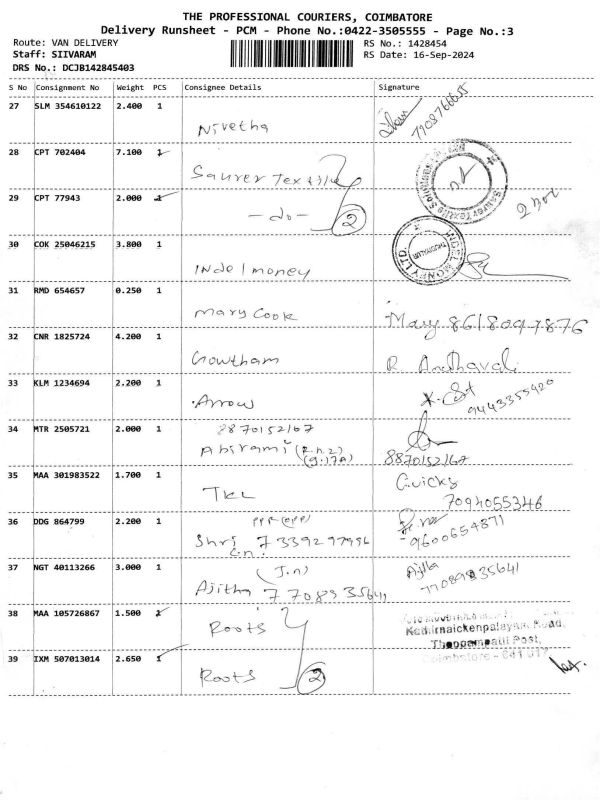 THE PROFESSIONAL COURIERS, COIMBATORE
Delivery Runsheet - PCM - Phone No.:0422-3505555 - Page No.:3
Route: VAN DELIVERY RS No.: 1428454
Staff: SIIVARAM RS Date: 16-Sep-2024
DRS No.: DCJB142845403
S No Consignment No Weight PCS Consignee Details Signature
27 SLM 354610122 2.400 1 Nivetha 7908766655
28 CPT 702404 7.100 1 Saurer Textile
29 CPT 77943 2.000 1 -do- 2
30 COK 25046215 3.800 1 Indel money
31 RMD 654657 0.250 1 Mary Cook Mary 8618097876
32 CNR 1825724 4.200 1 Gowtham R
33 KLM 1234694 2.200 1 Arrow 9443355420
34 MTR 2505721 2.000 1 8870152167
Abirami 8870152167
35 MAA 301983522 1.700 1 TKL 7094055346
36 DDG 864799 2.200 1 Shri 7339297996 9600654871
37 NGT 40113266 3.000 1 (J.n) Ajilla
Ajitha 7708935641 7708935641
38 MAA 105726867 1.500 1 Roots Kathirnaickenpalayam Road,
Thoppampatti Post,
39 IXM 507013014 2.650 1 Coimbatore - 641 017
Roots 2